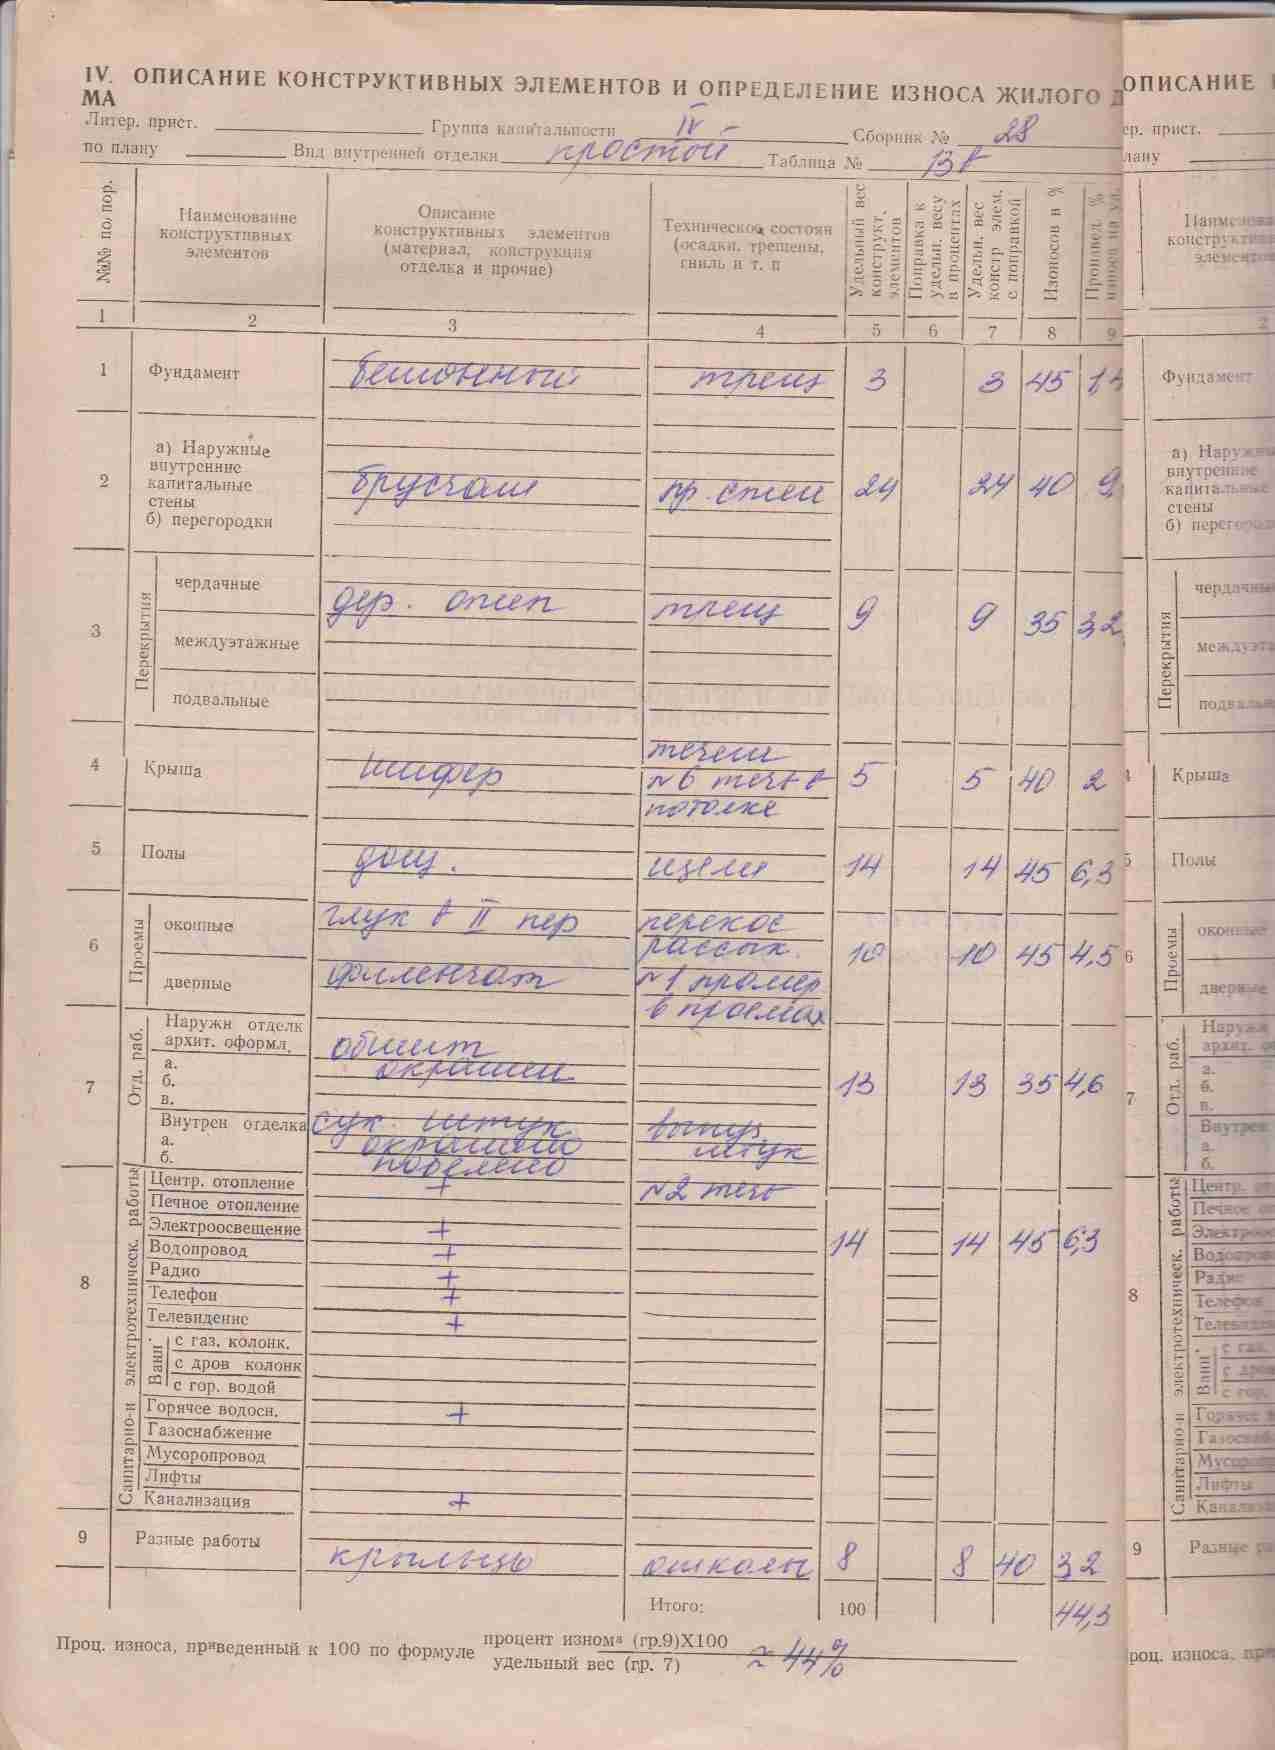 IV. ОПИСАНИЕ КОНСТРУКТИВНЫХ ЭЛЕМЕНТОВ И ОПРЕДЕЛЕНИЕ ИЗНОСА ЖИЛОГО Д
МА
Литер. прист. Группа капитальности IV Сборник № 28
по плану Вид внутренней отделки простой Таблица № 13в
№№ по, пор.
Наименование конструктивных элементов
Описание конструктивных элементов (материал, конструкция отделка и прочие)
Техническое состоян (осадки, трещены, гниль и т. п
Удельный вес конструкт. элементов
Поправка к удельн. весу в процентах
Удельн. вес констр элем. с поправкой
Изоносов в %
1 2 3 4 5 6 7 8 9
1 Фундамент бетонный трещ 3 3 45
2 а) Наружные внутренние капитальные стены б) перегородки брусчат 24 24 40 9,
3 Перекрытия
чердачные дер. отеп трещ 9 9 35 3,2
междуэтажные
подвальные
4 Крыша шифер течет №6 течь в потолке 5 5 40 2
5 Полы дощ. щели 14 14 45 6,3
6 Проемы
оконные глух в II пер перекос рассох. 10 10 45 4,5
дверные филенчат №1 промер в проемах
7 Отд. раб.
Наружн отделк архит. оформл. обшит окрашен 13 13 35 4,6
а.
б.
в.
Внутрен отделка сух. штук окрашено побелено выпуч. штук
а.
б.
8 Санитарно-и электротехническ. работы
Центр. отопление + №2 течь
Печное отопление
Электроосвещение + 14 14 45 6,3
Водопровод +
Радио +
Телефон +
Телевидение +
Ванн.
с газ. колонк.
с дров колонк
с гор. водой
Горячее водосн. +
Газоснабжение
Мусоропровод
Лифты
Канализация +
9 Разные работы крыльцо отколы 8 8 40 3,2
Итого: 100 44,3
Проц. износа, приведенный к 100 по формуле процент изнома (гр.9)X100
удельный вес (гр. 7) ≈ 44%
ОПИСАНИЕ
ер. прист.
лану
2
Фундамент
а) Наружн
внутренние
капитальные
стены
б) перегород
Перекрытия
чердачны
междуэта
подвальн
Крыша
5 Полы
6 Проемы
оконные
дверные
7 Отд. раб.
Наружн
архит. о
а.
б.
в.
Внутрен
а.
б.
8 Санитарно-и электротехническ. работы
Центр. о
Печное о
Электроос
Водопрово
Радио
Телефон
Телевиде
Ванн.
с газ.
с дро
с гор.
Горячее
Газоснаб
Мусороп
Лифты
Канализа
9 Разные ра
роц. износа, при